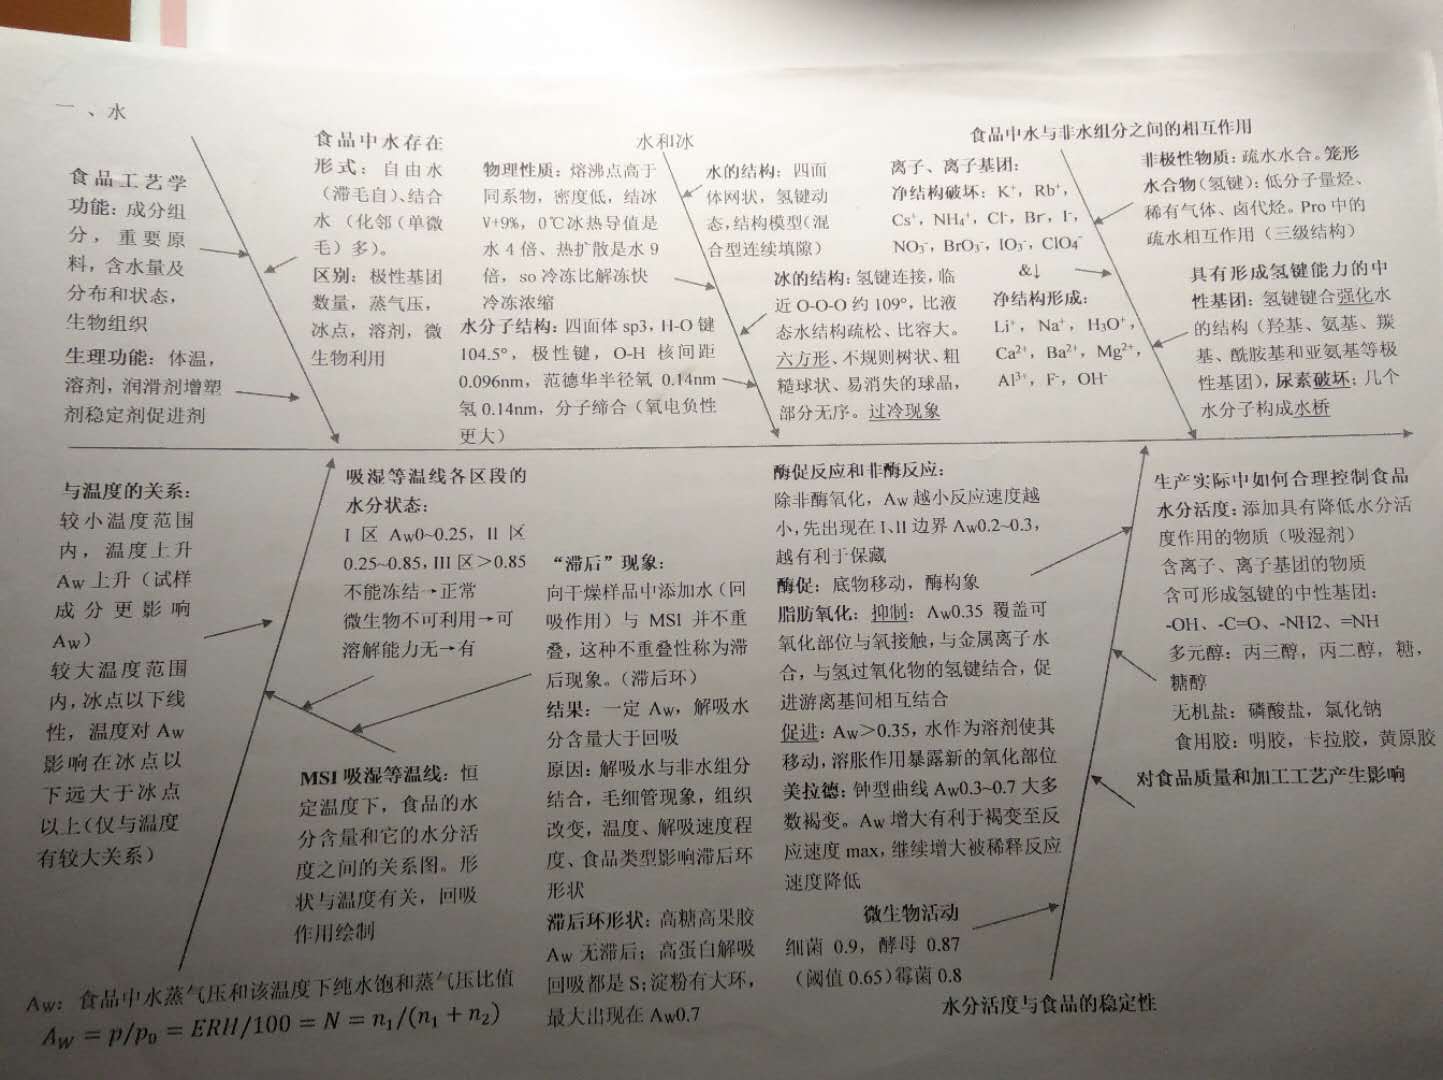 一、水
食品工艺学
功能：成分组
分，重要原
料，含水量及
分布和状态，
生物组织
生理功能：体温，
溶剂，润滑剂增塑
剂稳定剂促进剂
食品中水存在
形式：自由水
（滞毛自）、结合
水（化邻（单微
毛）多）。
区别：极性基团
数量，蒸气压，
冰点，溶剂，微
生物利用
水和冰
物理性质：熔沸点高于
同系物，密度低，结冰
V+9%，0℃冰热导值是
水 4 倍、热扩散是水 9
倍，so 冷冻比解冻快
冷冻浓缩
水分子结构：四面体 sp3，H-O 键
104.5°，极性键，O-H 核间距
0.096nm，范德华半径氧 0.14nm
氢 0.14nm，分子缔合（氧电负性
更大）
水的结构：四面
体网状，氢键动
态，结构模型（混
合型连续填隙）
冰的结构：氢键连接，临
近 O-O-O 约 109°，比液
态水结构疏松、比容大。
六方形、不规则树状、粗
糙球状、易消失的球晶，
部分无序。过冷现象
食品中水与非水组分之间的相互作用
离子、离子基团：
净结构破坏：K⁺，Rb⁺，
Cs⁺，NH₄⁺，Cl⁻，Br⁻，I⁻，
NO₃⁻，BrO₃⁻，IO₃⁻，ClO₄⁻
&↓
净结构形成：
Li⁺，Na⁺，H₃O⁺，
Ca²⁺，Ba²⁺，Mg²⁺，
Al³⁺，F⁻，OH⁻
非极性物质：疏水水合。笼形
水合物（氢键）：低分子量烃、
稀有气体、卤代烃。Pro 中的
疏水相互作用（三级结构）
具有形成氢键能力的中
性基团：氢键键合强化水
的结构（羟基、氨基、羰
基、酰胺基和亚氨基等极
性基团），尿素破坏；几个
水分子构成水桥
与温度的关系：
较小温度范围
内，温度上升
Aw 上升（试样
成分更影响
Aw）
较大温度范围
内，冰点以下线
性，温度对 Aw
影响在冰点以
下远大于冰点
以上（仅与温度
有较大关系）
吸湿等温线各区段的
水分状态：
I 区 Aw0~0.25，II 区
0.25~0.85，III 区＞0.85
不能冻结→正常
微生物不可利用→可
溶解能力无→有
MSI 吸湿等温线：恒
定温度下，食品的水
分含量和它的水分活
度之间的关系图。形
状与温度有关，回吸
作用绘制
Aw：食品中水蒸气压和该温度下纯水饱和蒸气压比值
A_W = p/p₀ = ERH/100 = N = n₁/(n₁ + n₂)
“滞后”现象：
向干燥样品中添加水（回
吸作用）与 MSI 并不重
叠，这种不重叠性称为滞
后现象。（滞后环）
结果：一定 Aw，解吸水
分含量大于回吸
原因：解吸水与非水组分
结合，毛细管现象，组织
改变，温度、解吸速度程
度、食品类型影响滞后环
形状
滞后环形状：高糖高果胶
Aw 无滞后；高蛋白解吸
回吸都是 S；淀粉有大环，
最大出现在 Aw0.7
酶促反应和非酶反应：
除非酶氧化，Aw 越小反应速度越
小，先出现在 I、II 边界 Aw0.2~0.3，
越有利于保藏
酶促：底物移动，酶构象
脂肪氧化：抑制：Aw0.35 覆盖可
氧化部位与氧接触，与金属离子水
合，与氢过氧化物的氢键结合，促
进游离基间相互结合
促进：Aw＞0.35，水作为溶剂使其
移动，溶胀作用暴露新的氧化部位
美拉德：钟型曲线 Aw0.3~0.7 大多
数褐变。Aw 增大有利于褐变至反
应速度 max，继续增大被稀释反应
速度降低
微生物活动
细菌 0.9，酵母 0.87
（阈值 0.65）霉菌 0.8
水分活度与食品的稳定性
生产实际中如何合理控制食品
水分活度：添加具有降低水分活
度作用的物质（吸湿剂）
含离子、离子基团的物质
含可形成氢键的中性基团：
-OH、-C=O、-NH2、=NH
多元醇：丙三醇，丙二醇，糖，
糖醇
无机盐：磷酸盐，氯化钠
食用胶：明胶，卡拉胶，黄原胶
对食品质量和加工工艺产生影响